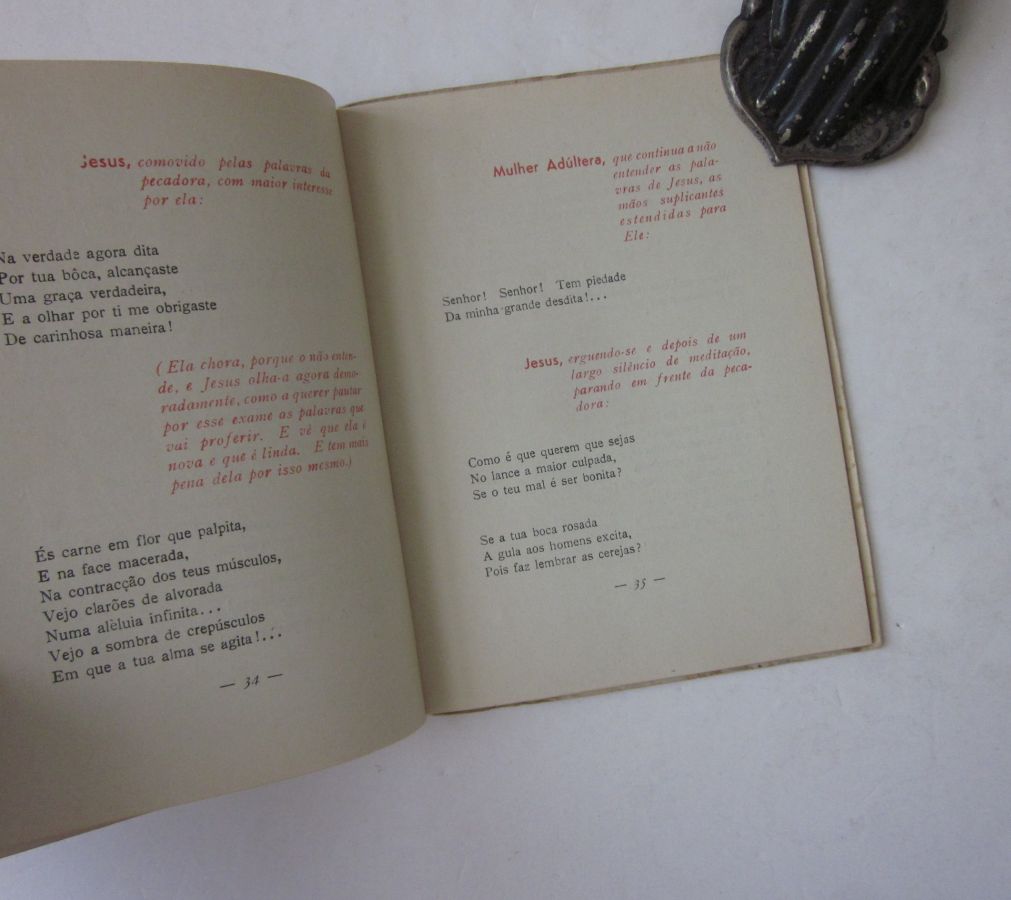 Jesus, comovido pelas palavras da
pecadora, com maior interesse
por ela:
Na verdade agora dita
Por tua bôca, alcançaste
Uma graça verdadeira,
E a olhar por ti me obrigaste
De carinhosa maneira!
(Ela chora, porque o não enten-
de, e Jesus olha-a agora demo-
radamente, como a querer pautar
por esse exame as palavras que
vai proferir. E vê que ela é
nova e que é linda. E tem mais
pena dela por isso mesmo.)
És carne em flor que palpita,
E na face macerada,
Na contracção dos teus músculos,
Vejo clarões de alvorada
Numa aleluia infinita...
Vejo a sombra de crepúsculos
Em que a tua alma se agita!...
— 34 —
Mulher Adúltera, que continua a não
entender as pala-
vras de Jesus, as
mãos suplicantes
estendidas para
Ele:
Senhor! Senhor! Tem piedade
Da minha grande desdita!...
Jesus, erguendo-se e depois de um
largo silêncio de meditação,
parando em frente da peca-
dora:
Como é que querem que sejas
No lance a maior culpada,
Se o teu mal é ser bonita?
Se a tua boca rosada
A gula aos homens excita,
Pois faz lembrar as cerejas?
— 35 —